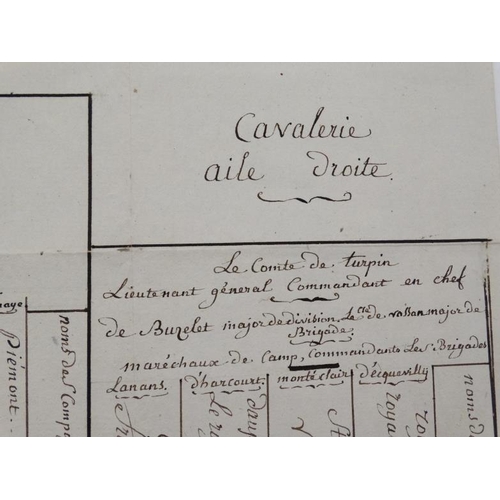 Cavalerie
aile droite.
Le Comte de turpin
Lieutenant général Commandant en chef
de Buzelet major de division. Le Cte de vassan major de
Brigade.
maréchaux de Camp, Commandants Les Brigades
Lanans. d'harcourt. montéclair d'écquevilly
Piémont..
noms des Compa